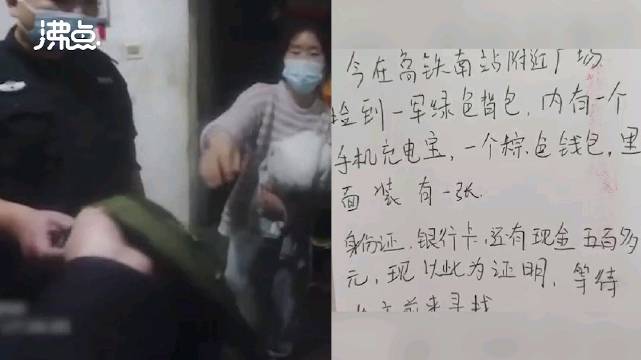 沸点
今在高铁南站附近广场
捡到一军绿色背包，内有一个
手机充电宝，一个棕色钱包，里
面装有一张
身份证、银行卡，还有现金五百多
元，现以此为证明，等待
前来寻找